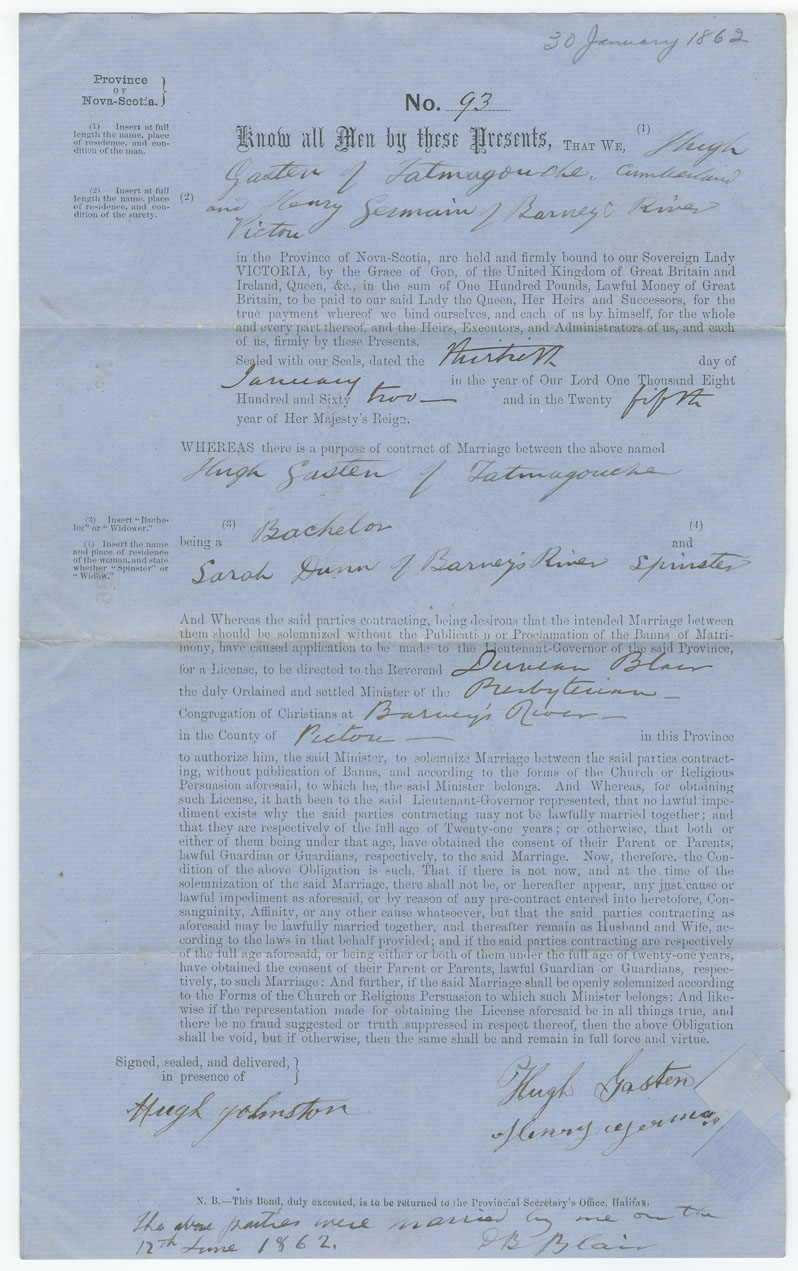 30 January 1862
Province
OF
Nova-Scotia.
No. 93
(1) Insert at full
length the name, place
of residence, and con-
dition of the man.
Know all Men by these Presents, THAT WE, (1) Hugh
Gasten of Tatmagouche, Cumberland
(2) Insert at full
length the name, place
of residence, and con-
dition of the surety.
(2) and Henry Germain of Barney's River
Pictou
in the Province of Nova-Scotia, are held and firmly bound to our Sovereign Lady
VICTORIA, by the Grace of God, of the United Kingdom of Great Britain and
Ireland, Queen, &c., in the sum of One Hundred Pounds, Lawful Money of Great
Britain, to be paid to our said Lady the Queen, Her Heirs and Successors, for the
true payment whereof we bind ourselves, and each of us by himself, for the whole
and every part thereof, and the Heirs, Executors, and Administrators of us, and each
of us, firmly by these Presents.
Sealed with our Seals, dated the thirtieth day of
January in the year of Our Lord One Thousand Eight
Hundred and Sixty two — and in the Twenty fifth
year of Her Majesty's Reign.
WHEREAS there is a purpose of contract of Marriage between the above named
Hugh Gasten of Tatmagouche
(3) Insert "Bache-
lor" or "Widower."
(4) Insert the name
and place of residence
of the woman, and state
whether "Spinster" or
"Widow."
being a (3) Bachelor and (4)
Sarah Dunn of Barney's River Spinster
And Whereas the said parties contracting, being desirous that the intended Marriage between
them should be solemnized without the Publication or Proclamation of the Banns of Matri-
mony, have caused application to be made to the Lieutenant-Governor of the said Province,
for a License, to be directed to the Reverend Duncan Blair
the duly Ordained and settled Minister of the Presbyterian —
Congregation of Christians at Barney's River —
in the County of Pictou — in this Province
to authorize him, the said Minister, to solemnize Marriage between the said parties contract-
ing, without publication of Banns, and according to the forms of the Church or Religious
Persuasion aforesaid, to which he, the said Minister belongs. And Whereas, for obtaining
such License, it hath been to the said Lieutenant-Governor represented, that no lawful impe-
diment exists why the said parties contracting may not be lawfully married together; and
that they are respectively of the full age of Twenty-one years; or otherwise, that both or
either of them being under that age, have obtained the consent of their Parent or Parents,
lawful Guardian or Guardians, respectively, to the said Marriage. Now, therefore, the Con-
dition of the above Obligation is such, That if there is not now, and at the time of the
solemnization of the said Marriage, there shall not be, or hereafter appear, any just cause or
lawful impediment as aforesaid, or by reason of any pre-contract entered into heretofore, Con-
sanguinity, Affinity, or any other cause whatsoever, but that the said parties contracting as
aforesaid may be lawfully married together, and thereafter remain as Husband and Wife, ac-
cording to the laws in that behalf provided; and if the said parties contracting are respectively
of the full age aforesaid, or being either or both of them under the full age of twenty-one years,
have obtained the consent of their Parent or Parents, lawful Guardian or Guardians, respec-
tively, to such Marriage: And further, if the said Marriage shall be openly solemnized according
to the Forms of the Church or Religious Persuasion to which such Minister belongs: And like-
wise if the representation made for obtaining the License aforesaid be in all things true, and
there be no fraud suggested or truth suppressed in respect thereof, then the above Obligation
shall be void, but if otherwise, then the same shall be and remain in full force and virtue.
Signed, sealed, and delivered,
in presence of
Hugh Gasten
Hugh Johnston
Henry German
N. B.—This Bond, duly executed, is to be returned to the Provincial Secretary's Office, Halifax.
The above parties were married by me on the
12th June 1862. D B Blair